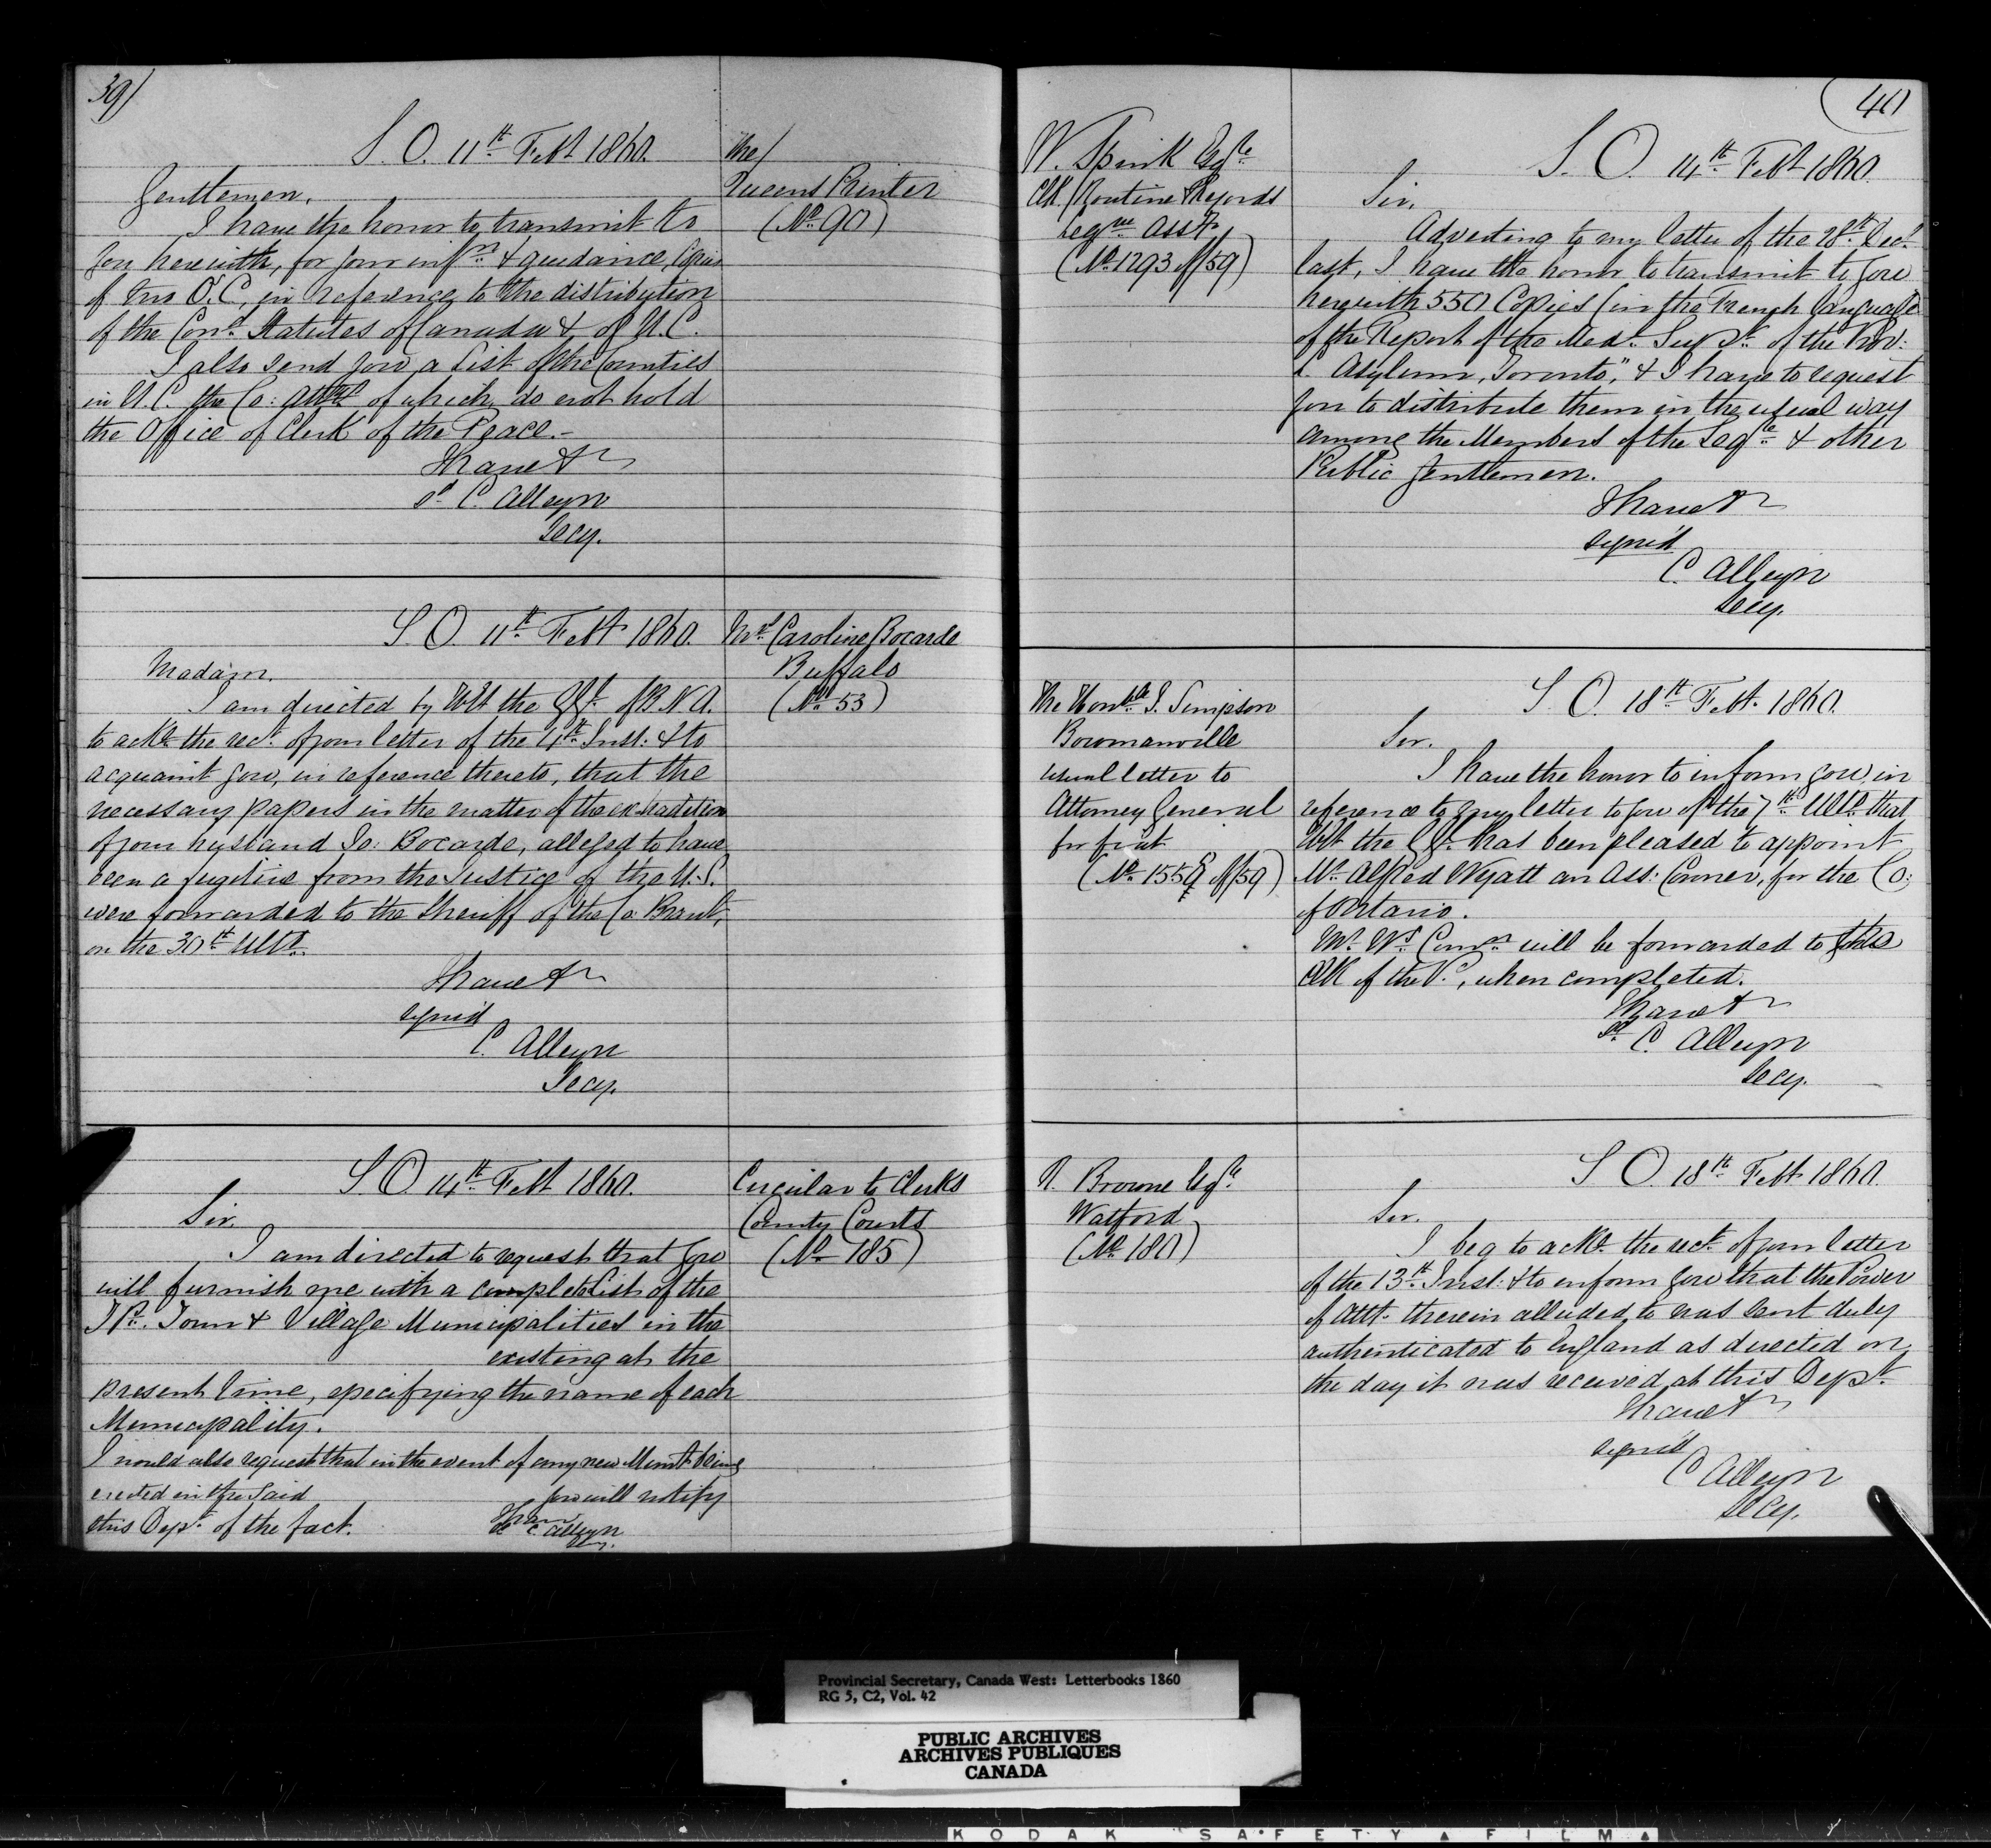 39)
S. O. 11th Feby 1860.
Gentlemen,
I have the honor to transmit to
you herewith, for your infn & guidance, Copies
of two O. C, in reference to the distribution
of the Cons. Statutes of Canada & of U. C.
I also send you a List of the Counties
in U. C. the Co: Attys of which do not hold
the Office of Clerk of the Peace.-
I have &
sd C. Alleyn
Secy.
The/
Queens Printer
(No. 90)
S. O. 11th Feby 1860.
Madam.
I am directed by the of B. N. A.
to ackn the rect. of your letter of the 4th Inst: & to
acquaint you, in reference thereto, that the
necessary papers in the matter of the extradition
of your husband Jo: Bocarde, alleged to have
been a fugitive from the Justice of the U. S.
were forwarded to the Sheriff of the Co: Brant,
on the 30th Ulto.
I have &
signed
C. Alleyn
Secy.
Mrs. Caroline Bocarde
Buffalo
(No. 53)
S. O. 14th Feby 1860.
Sir.
I am directed to request that you
will furnish me with a complete List of the
Tp. Town & Village Municipalities in the
existing at the
present time, specifying the name of each
Municipality.
I would also request that in the event of any new Munt. being
erected in the said you will notify
this Dept. of the fact.
I have
sd C. Alleyn
Secy.
Circular to Clerks
County Courts
(No. 185)
40
W. Spink Esqre
Clk. Routine Records
Legve Assy.
(No. 1293 of/59)
S. O. 14th Feby 1860.
Sir,
Adverting to my letter of the 28th Decr
last, I have the honor to transmit to you
herewith 550 Copies (in the French language
of the Report of the Med. Supt. of the Prov:
L. Asylum, Toronto," & I have to request
you to distribute them in the usual way
among the Members of the Legre & other
Public Gentlemen.
I have &
signed
C. Alleyn
Secy.
The Honble J. Simpson
Bowmanville
usual letter to
Attorney General
for fiat
(No. 1559 of/59)
S. O. 18th Feby. 1860.
Sir.
I have the honor to inform you, in
reference to my letter to you of the 7th Ulto. that
the has been pleased to appoint
Mr. Alfred Wyatt an Ass: Coroner, for the Co:
of Ontario.
Mr. Ws. Comn will be forwarded to the
Clk of the P., when completed.
I have &
sd. C. Alleyn
Secy.
Browne Esqre.
Watford
(No. 180)
S. O. 18th Feby 1860.
Sir.
I beg to ackn. the rect. of your letter
of the 13th. Inst: & to inform you that the Power
of Atty. therein alluded to was sent duly
authenticated to England as directed on
the day it was received at this Dept.
I have &
signed
C Alleyn
Secy.
Provincial Secretary, Canada West: Letterbooks 1860
RG 5, C2, Vol. 42
PUBLIC ARCHIVES
ARCHIVES PUBLIQUES
CANADA
KODAK SAFETY FILM